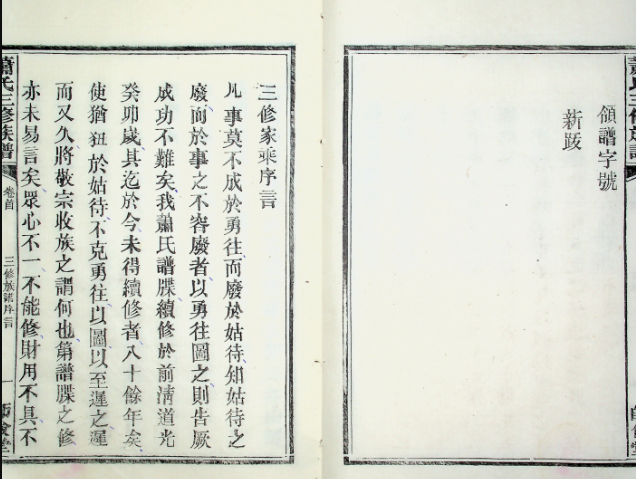 領譜字號
新跋
三修家乘序言
凡事莫不成於勇往而廢於姑待知姑待之
廢而於事之不容廢者以勇往圖之則告厥
成功不難矣我蕭氏譜牒續修於前淸道光
癸卯歲其迄於今未得續修者八十餘年矣
使猶狃於姑待不克勇往以圖以至遲之遲
而又久將敬宗收族之謂何也第譜牒之修
亦未易言矣眾心不一不能修財用不具不
蕭氏三修族譜
卷首
三修族譜序言
一